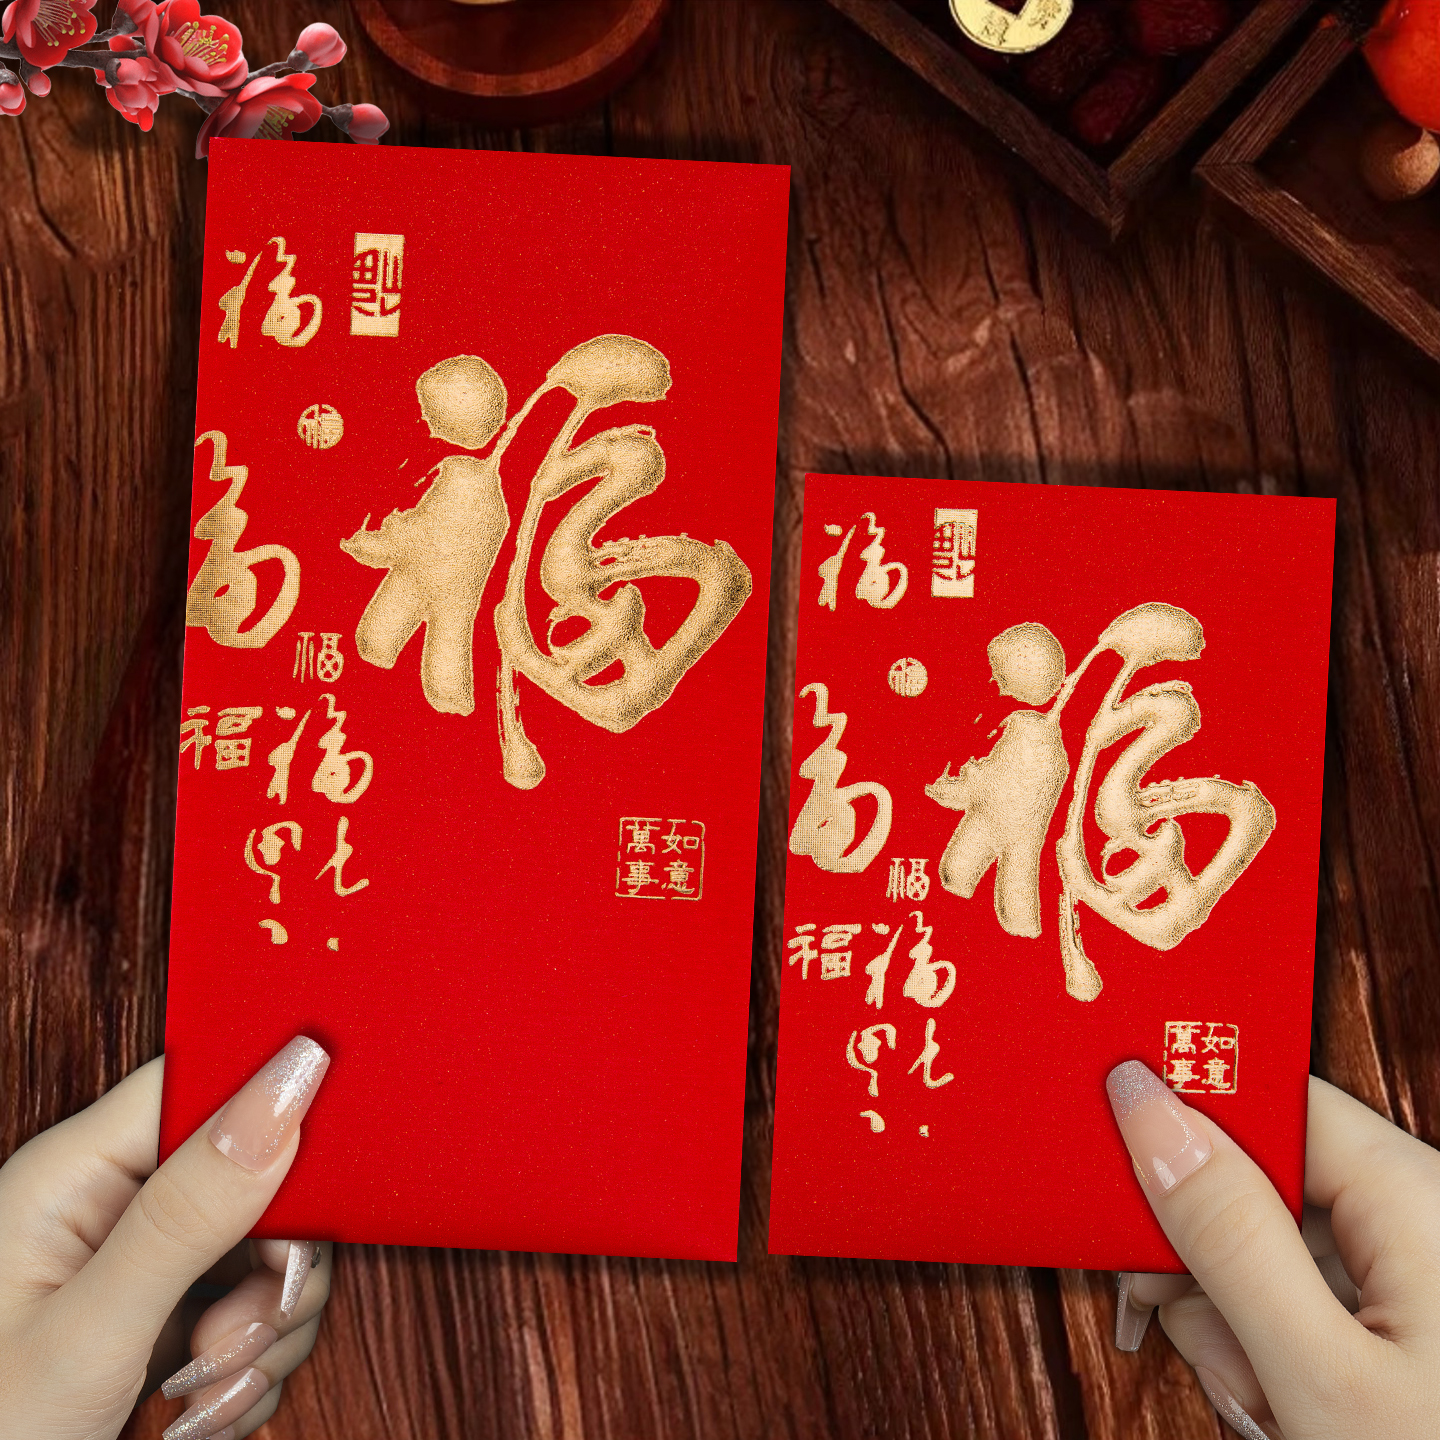 福
福
福
福
福
福
福
如意
萬事
福
福
福
福
福
福
福
如意
萬事